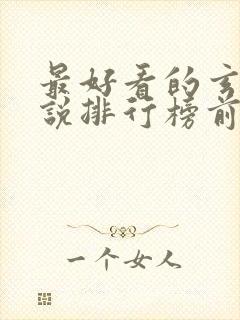 最好看的玄
说排行榜前
一个女人